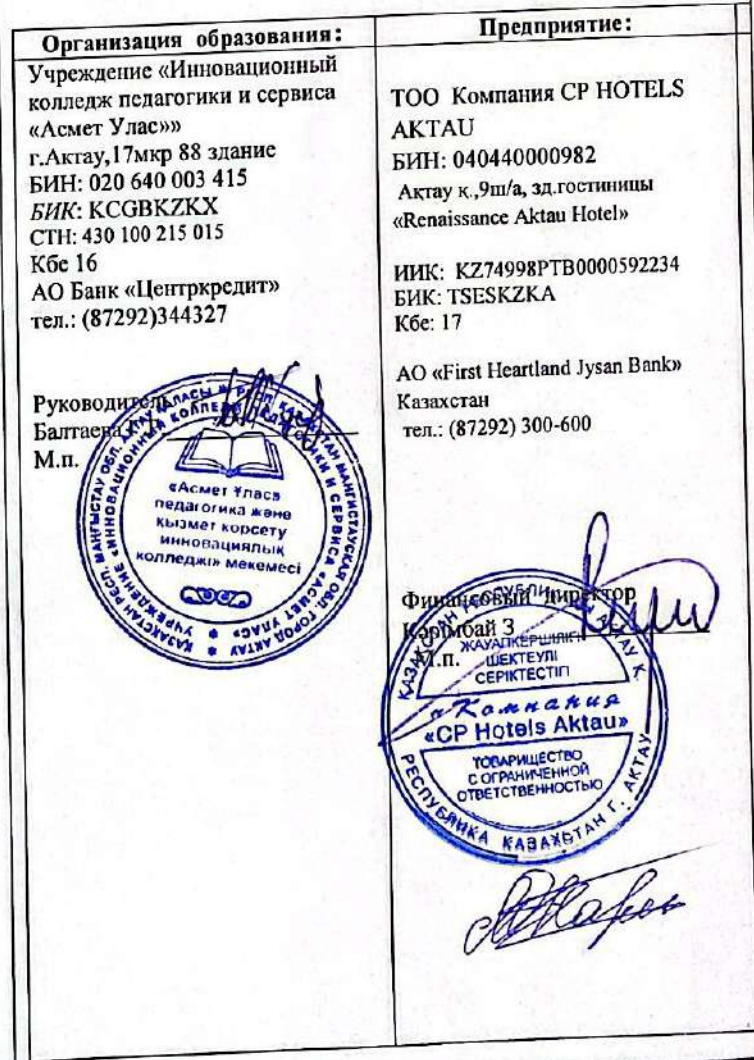 Организация образования:
Учреждение «Инновационный
колледж педагогики и сервиса
«Асмет Улас»»
г.Актау,17мкр 88 здание
БИН: 020 640 003 415
БИК: KCGBKZKX
СТН: 430 100 215 015
Кбе 16
АО Банк «Центркредит»
тел.: (87292)344327
Руководитель
Балтаева
М.п.
ҚАЗАҚСТАН РЕСП. МАҢҒЫСТАУ ОБЛ. АҚТАУ ҚАЛАСЫ * РЕСП. КАЗАХСТАН МАНГИСТАУСКАЯ ОБЛ. ГОРОД АКТАУ
УЧРЕЖДЕНИЕ «ИННОВАЦИОННЫЙ КОЛЛЕДЖ ПЕДАГОГИКИ И СЕРВИСА «АСМЕТ УЛАС»
«Асмет Ұлас»
педагогика және
қызмет көрсету
инновациялық
колледжі» мекемесі
Предприятие:
ТОО Компания CP HOTELS
AKTAU
БИН: 040440000982
Ақтау қ.,9ш/а, зд.гостиницы
«Renaissance Aktau Hotel»
ИИК: KZ74998PTB0000592234
БИК: TSESKZKA
Кбе: 17
АО «First Heartland Jysan Bank»
Казахстан
тел.: (87292) 300-600
Финансовый директор
Кәрімбай З
М.п.
ЖАУАПКЕРШІЛІГІ
ШЕКТЕУЛІ
СЕРІКТЕСТІГІ
«Компания
«CP Hotels Aktau»
ТОВАРИЩЕСТВО
С ОГРАНИЧЕННОЙ
ОТВЕТСТВЕННОСТЬЮ
РЕСПУБЛИКА КАЗАХСТАН Г. АКТАУ